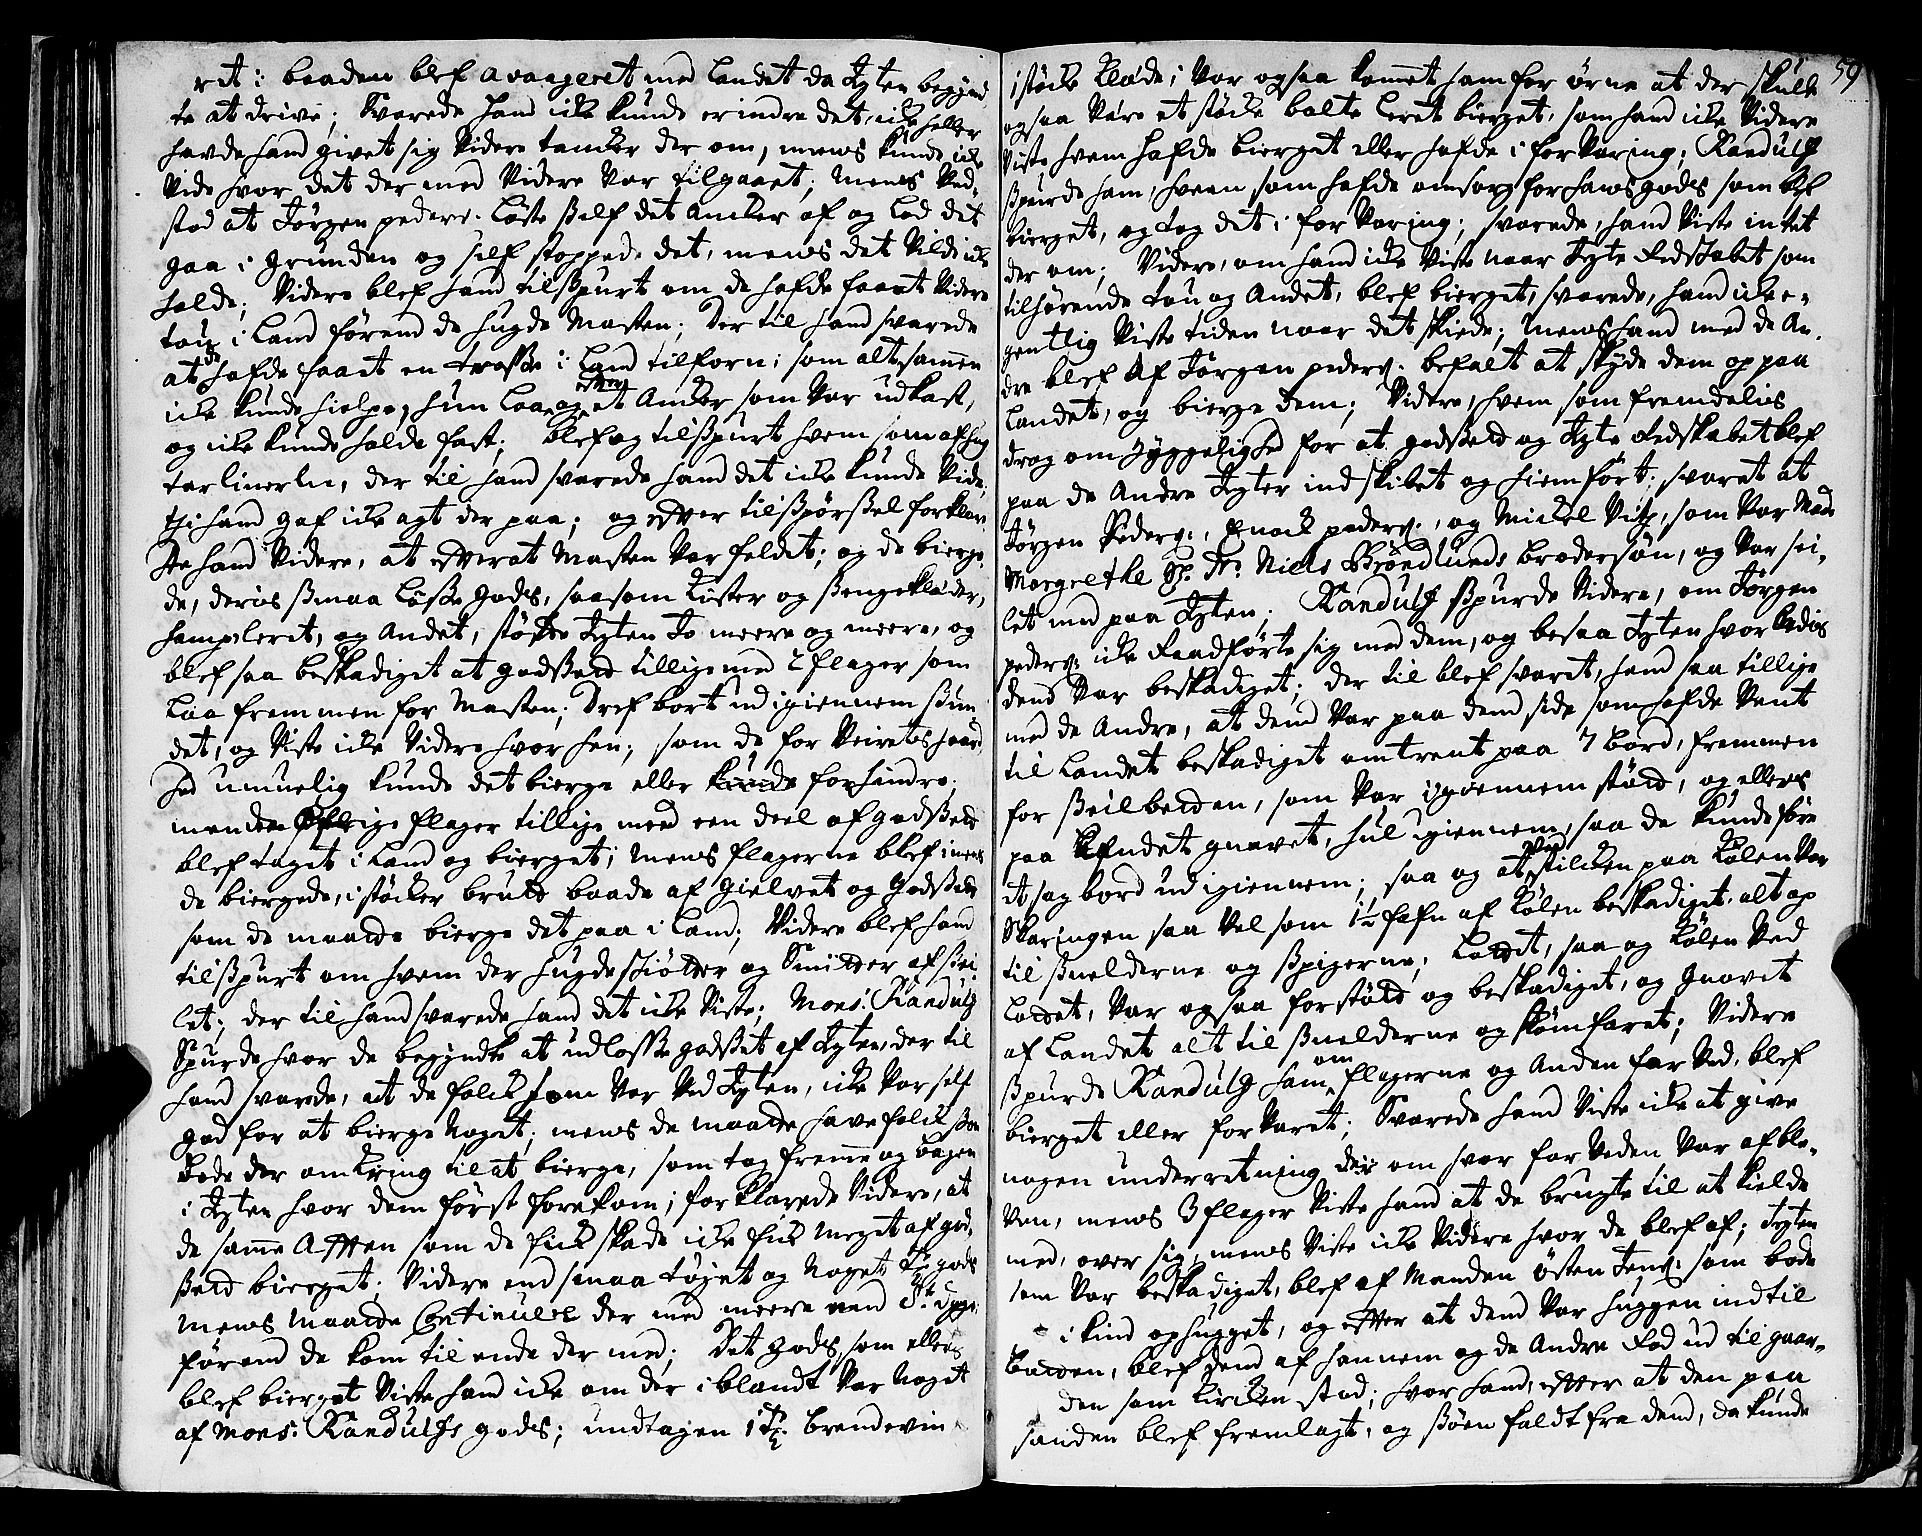 ret: baaden blef avaageret med Landet da Jgten begynd
te at drive; Svarede hand icke kunde erindre det, icke heller
hafde hand givet sig Videre tancker der om, mens kunde icke
Vide hvor det der med Videre Var tilgaaet; Mens Ved-
stod at Jørgen peders: Løste self det Ancker af og Lod det
gaa i grunden og self stoppede det, mens det Vilde icke
holde; Videre blef hand tilspurt om de hafde faaet Videre
toug i Land førend de hugde Masten; der til hand svarede
at de hafde faaet en trosse i Land tilforn; som altsammen
icke kunde hielpe, hun Laa og efter et Ancker som Var udkast,
og icke kunde holde fast; blef og tilspurt hvem som afhug
tarlinerlin, der til hand svarede hand det icke kunde Vide,
thi hand gaf icke agt der paa; og efter tilspørsel forklar-
de hand Videre, at efterat Masten Var feldet; og de bierge-
de, deris smaa Løsse gods, saasom Kister og Sengeklæder,
hampleret, og Andet, stødte Jgten Jo meere og meere, og
blef saa beskadiget at godset tillige med 2 flager som
Laa fremmen for Masten; Dref bort ud igiennem Sun-
det, og Viste icke Videre hvor hen; som de for Veirets haard-
hed umuelig kunde det bierge eller kunde forhindre;
men de øfrige flager tillige med een deel af godset
blef taget i Land og bierget; Mens flagerne blef imens
de biergede, i støcker brutt baade af gielvet og Godset
som de maatte bierge det paa i Land; Videre blef hand
tilspurt om hvem der hugde skiøtter og Smitter af Sei-
let; der til hand svarede hand det icke Viste; Mons: Randulf
Spurde hvor de begyndte at udlosse godset af Jgten, der til
hand svarede, at de folck som Var Ved Jgten, icke Var self
god for at bierge Noget; mens de maatte have folck som
boede der omkring til at bierge, som tog fremme og bagen
i Jgten hvor dem først forekom; forklarede Videre, at
de samme Aften som de fick skade icke fick Meget af god-
set bierget; Videre end smaa tøjet og Noget gods
mens maatte Continuere der med meere end
førend de kom til ende der med; Det gods, som ellers
blef bierget Viste hand icke om der iblandt Var Noget
af Mons: Randulfs gods; undtagen 1 brendevin
59
1 støcke Klæde; Var ogsaa kommet ham for ørne at der skulle
ogsaa Være et støcke bolte Leret bierget, som hand icke Videre
Viste hvem hafde bierget eller hafde i forVaring; Randulf
spurde ham, hvem som hafde omsorg for hans gods som blef
bierget, og tog det i forVaring; svarede, hand Viste intet
der om; Videre, om hand icke Viste naar Jgte Redskabet som
tilhørende tou og Andet, blef bierget, svarede, hand icke e-
gentlig Viste tiden naar det skiede; Mens hand med de An-
dre blef Af Jørgen peders: befalt at skyde dem op paa
Landet, og bierge dem; Videre, hvem som fremdelis
drog om hyggelighed for at godset og Jgte Redskabet blef
paa de Andre Jgter ind skibet og hiemført; svaret at
Jørgen Peders:, Enock peders:, og Mickel Vitz, som Var Mad:
Margrethe Sl: Hr: Niels Brøndlunds Brodersøn, og Var sei-
let med paa Jgten; Randulf spurde Videre, om Jørgen
peders: icke Raadførte sig med dem, og besaa Jgten hvor ledis
dend Var beskadiget; der til blef svaret, hand saa tillige
med de Andre, at dend Var paa dend side som hafde Vent
til Landet beskadiget omtrent paa 7 bord, fremmen
for Seilbeeden, som Var igiennem stødt, og ellers
paa Landet gnavet, hul igiennem, saa de kunde føre
et sag bord ud igiennem; saa og at Ved stilcken paa Kølen Var
Skaringen saa Vel som 1½ fafn af Kølen beskadiget, alt op
til Snelderne og Spigerne; Lottet, saa og Kølen Ved
Lottet, Var ogsaa forstødt og beskadiget, og gnavet
af Landet alt til Snelderne og Kømfaret; Videre
spurde Randulf ham om flagerne og Anden farVed, blef
bierget eller forVaret; Svarede hand Viste icke at give
nogen underretning der om hvor farVeden Var afble-
ven, mens 3 flager Viste hand at de brugte til at Tielde
med, over sig, mens Viste icke Videre hvor de blef af; Jgten
som Var beskadiget, blef af Manden Østen Jens: som bode
i Kind ophugget, og efter at dend Var huggen ind til
Botten, blef dend af hannem og de Andre Rod ud til gaar-
den som Kircken stod; hvor hand, efter at den paa
sanden blef fremlagt, og Søen faldt fra dend, da kunde